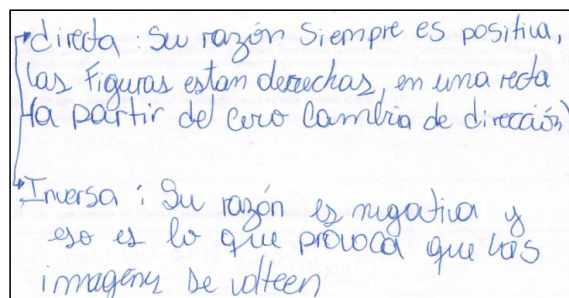 directa : Su razón siempre es positiva,
las figuras estan derechas, en una recta
(a partir de cero cambia de dirección)
Inversa : Su razón es negativa y
eso es lo que provoca que las
imagenes se volteen